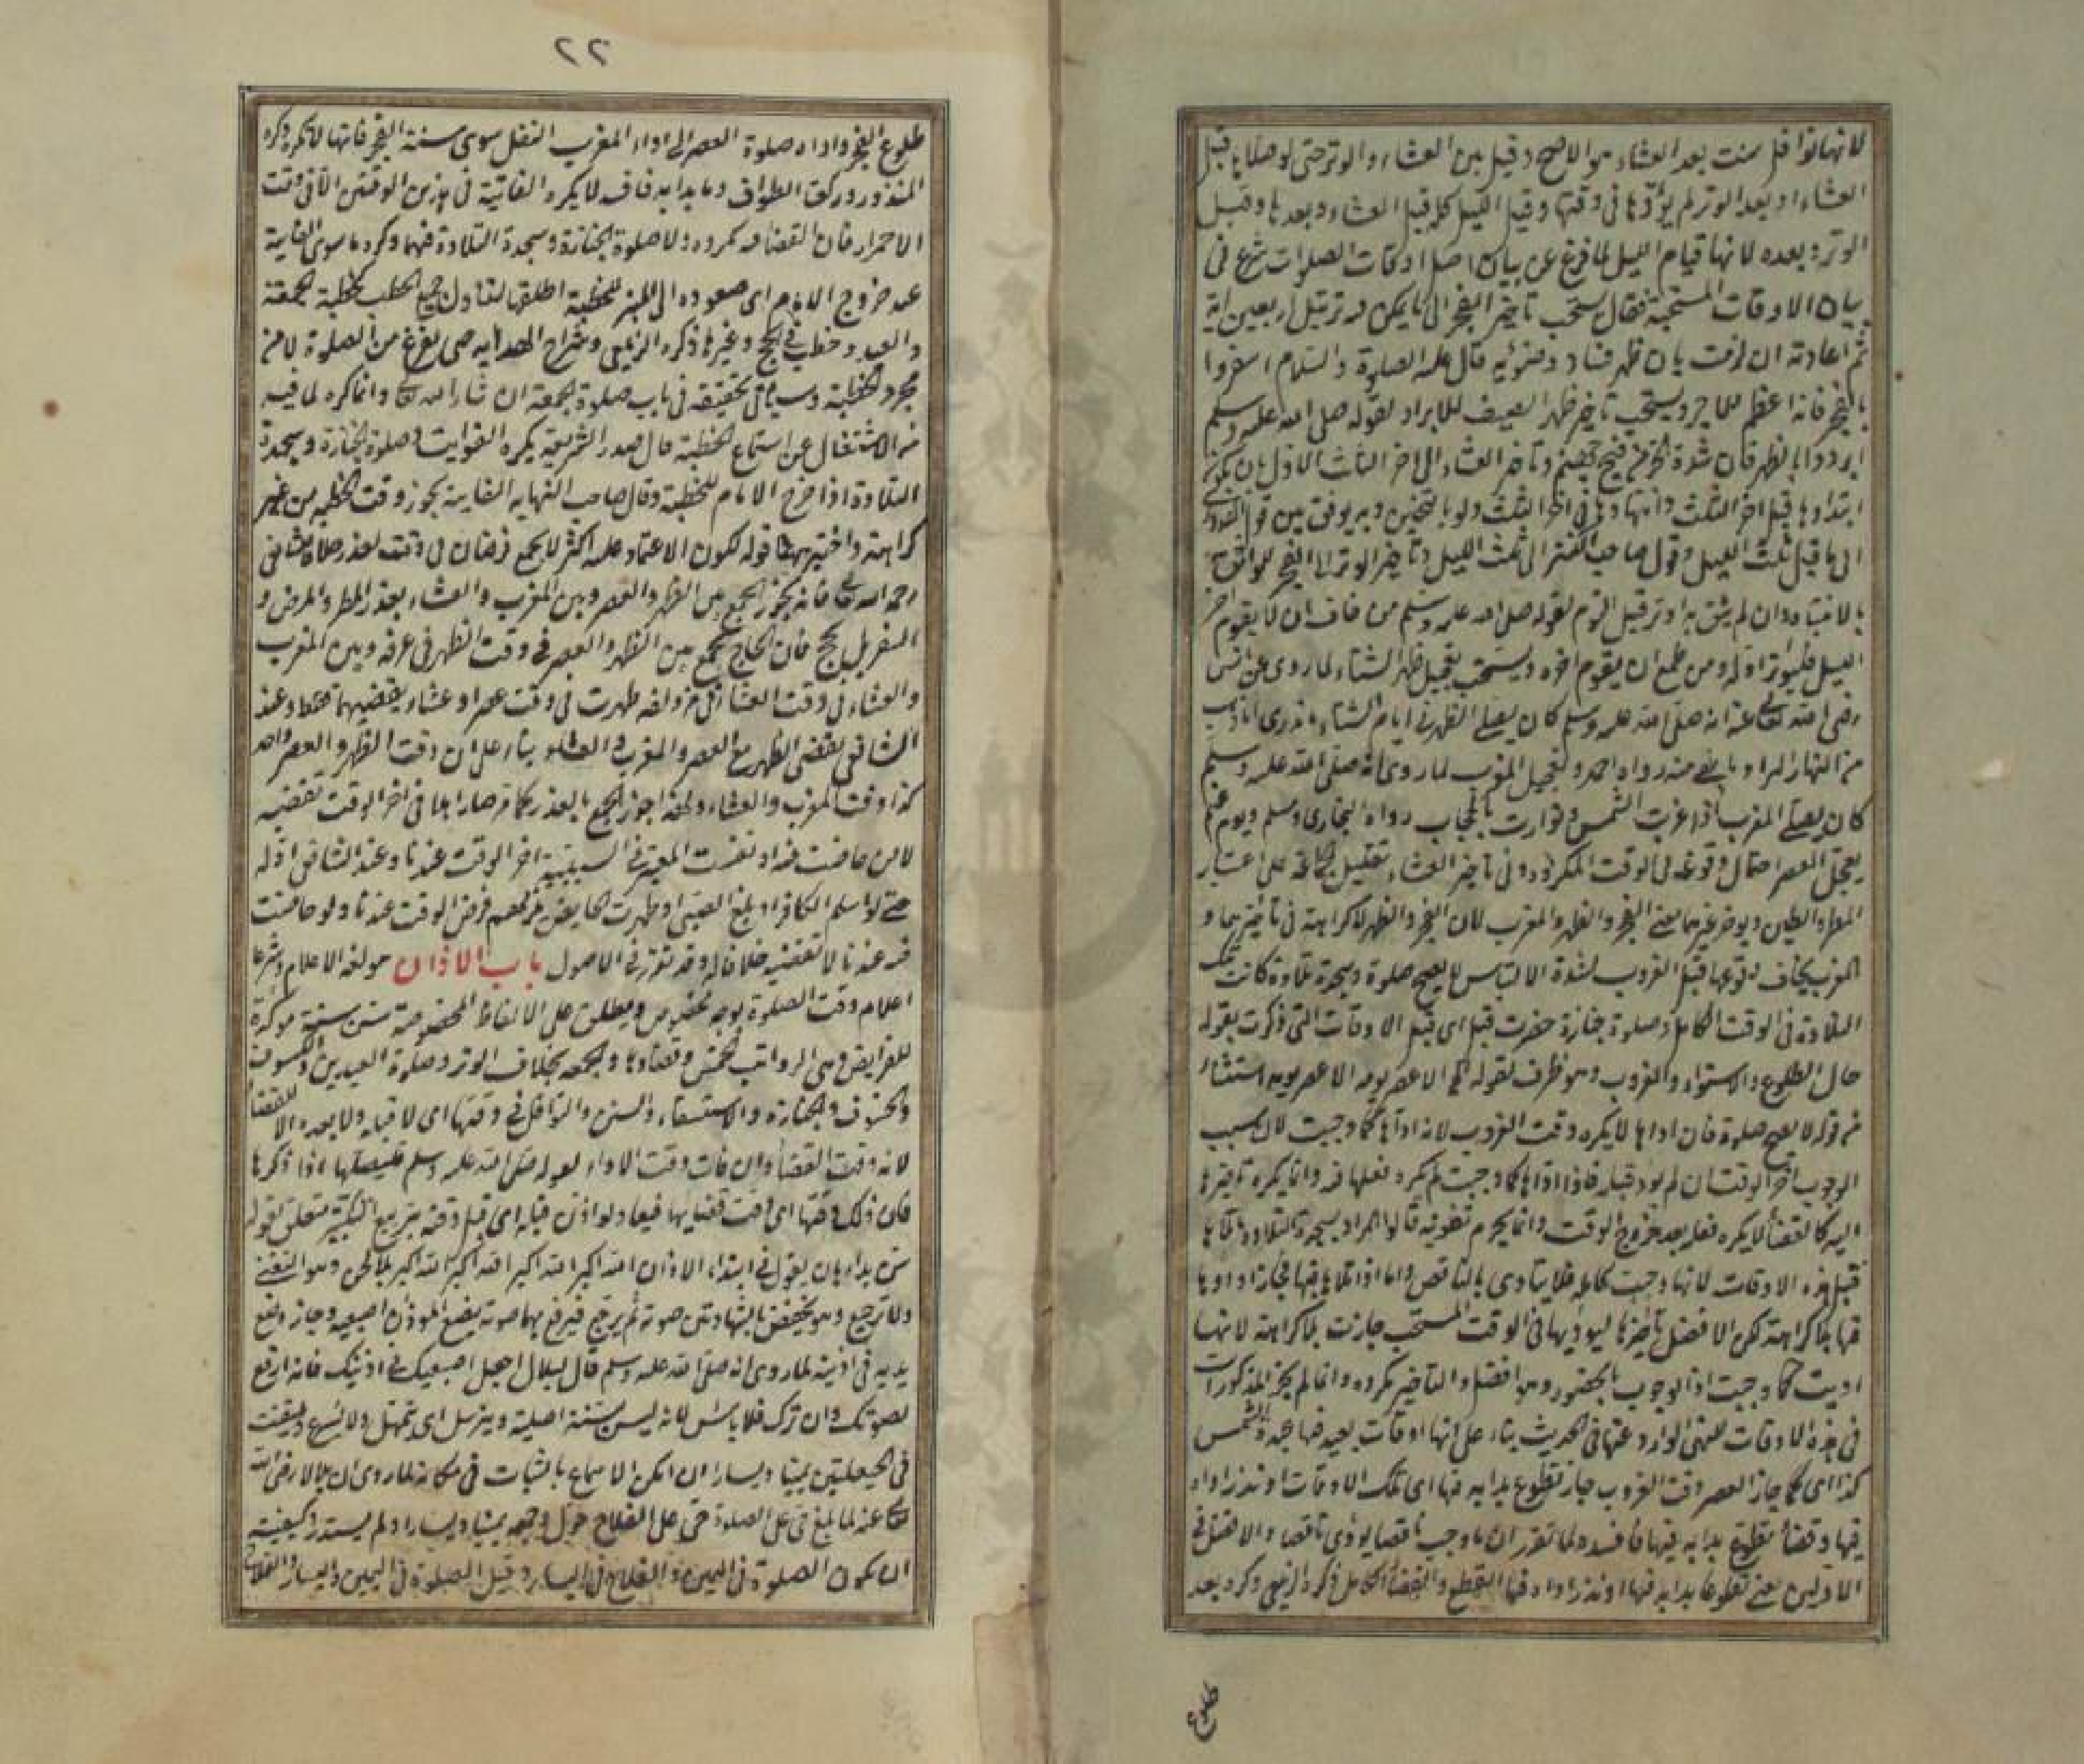 لانها نوافل سنت بعد العشاء هو الاصح وقيل بين العشاء والوتر حتى لو صلاها قبل
العشاء او بعد الوتر لم يؤدها في وقتها وقيل الليل كله قبل العشاء وبعدها وقبل
الوتر وبعده لانها قيام الليل لما فرغ عن بيان اصل اوقات الصلوات شرع في
بيان الاوقات المستحبة فقال يستحب تاخير الفجر الى ما يمكن فيه ترتيل اربعين اية
ثم اعادته ان لزمت بان ظهر فساد وضوئه قال عليه الصلوة والسلام اسفروا
بالفجر فانه اعظم للاجر ويستحب تاخير ظهر الصيف للابراد لقوله صلى الله عليه وسلم
ابردوا بالظهر فان شدة الحر من فيح جهنم وتاخير العشاء الى اخر الثلث الاول بان يكون
ابتداؤها قبل اخر الثلث وانتهاؤها في اخر الثلث ولو بالتخمين وبه يوفق بين قول القدوري
الى ما قبل ثلث الليل وقول صاحب الكنز الى ثلث الليل وتاخير الوتر الى الفجر للواثق
بالانتباه وان لم يثق به اوتر قبل النوم لقوله صلى الله عليه وسلم من خاف ان لا يقوم اخر
الليل فليوتر اوله ومن طمع ان يقوم اخره ويستحب تعجيل ظهر الشتاء لما روى عن انس
رضى الله تعالى عنه انه صلى الله عليه وسلم كان يصلي الظهر في ايام الشتاء ما ندرى اما ذهب
من النهار اكثر او ما بقى منه رواه احمد وتعجيل المغرب لما روى انه صلى الله عليه وسلم
كان يصلى المغرب اذا غربت الشمس وتوارت بالحجاب رواه البخارى ومسلم ويوم غيم
يعجل العصر احتمال وقوعه في الوقت المكروه وفي تاخير العشاء تقليل الجماعة على اعتبار
المطر والطين ويؤخر غيرهما يعني الفجر والظهر والمغرب لان الفجر والظهر لا كراهة في تاخيرهما و
المغرب يخاف وقوعها قبل الغروب لشدة الالتباس لا يصح صلوة وسجدة تلاوة كانت تلك
التلاوة في الوقت الكامل وصلوة جنازة حضرت قبل اى قبل الاوقات التى ذكرت بقوله
حال الطلوع والاستواء والغروب وهو ظرف لقوله الا عصر يومه استثناء
من قوله لا يصح صلوة فان اداها لا يكره وقت الغروب لانه اداها كما وجبت لان سبب
الوجوب اخر الوقت ان لم يؤد قبله فاذا اداها كما وجبت لم يكره فعلها فيه وانما يكره تاخيرها
اليه كالقضاء لا يكره فعله بعد خروج الوقت وانما يحرم تفويته قالوا المراد بسجدة التلاوة ما تلاها
قبل هذه الاوقات لانها وجبت كاملة فلا يتادى بالناقص واما اذا تلاها فيها فجاز اداؤها
فيها بلا كراهة لكن الافضل تاخيرها ليؤديها في الوقت المستحب جازت بلا كراهة لانها
اديت كما وجبت اذ الوجوب بالحضور وهو افضل والتاخير مكروه وانما لم يجز المذكورات
في هذه الاوقات للنهى الوارد عنها في الحديث بناء على انها اوقات يعبد فيها عبدة الشمس
كذا اى كما جاز العصر وقت الغروب جاز تطوع بدا به فيها اى تلك الاوقات او نذر اداه
فيها وقضاء تطوع بدا به فيها فافسده لما تقرر ان ما وجب ناقصا يؤدى ناقصا والافضل في
الاولين يعنى تطوعا بدا به فيها او نذر اداءه فيها القطع والقضاء في الكامل ذكره الزيلعى وكره بعد
طلوع
٢٢
طلوع الفجر واداء صلوة العصر الى اداء المغرب النفل سوى سنة الفجر فانها لا تكره وكره
المنذور وركعتا الطواف وما بدا به فافسد لا يكره الفائتة في هذين الوقتين الا في وقت
الاحمرار فان القضاء فيه مكروه ولا صلوة الجنازة وسجدة التلاوة فيهما وكره ما سوى الفائتة
عند خروج الامام اى صعوده الى المنبر للخطبة اطلقها لتناول جميع الخطب كخطبة الجمعة
والعيد وخطب في الحج وغيرها ذكره الزيلعى وشراح الهداية حتى يفرغ من الصلوة لا من
مجرد الخطبة وسياتى تحقيقه في باب صلوة الجمعة ان شاء الله تعالى وانما كره لما فيه
من الاشتغال عن استماع الخطبة قال صدر الشريعة يكره الفوايت وصلوة الجنازة وسجدة
التلاوة اذا خرج الامام للخطبة وقال صاحب النهاية الفايتة يجوز وقت الخطبة من غير
كراهة واختير ههنا قوله لكون الاعتماد عليه اكثر لا يجمع فرضان في وقت بعذر خلافا للشافعى
رحمه الله تعالى فانه يجوز الجمع بين الظهر والعصر وبين المغرب والعشاء بعذر المطر والمرض و
السفر بل بحج فان الحاج يجمع بين الظهر والعصر في وقت الظهر في عرفة وبين المغرب
والعشاء في وقت العشاء في مزدلفة طهرت في وقت عصر او عشاء يقضيهما فقط وعند
الشافعى يقضى الظهر مع العصر والمغرب والعشاء بناء على ان وقت الظهر والعصر واحد
كذا وقت المغرب والعشاء ولهذا جوز الجمع بالعذر كما مر صار اهلا في اخر الوقت تقضيه
لا من حاضت فيه او نفست المعتبر في السببية اخر الوقت عندنا وعند الشافعى اوله
حتى لو اسلم الكافر او بلغ الصبى او طهرت الحايض يلزمهم فرض الوقت عندنا ولو حاضت
فيه عندنا لا تقضيه خلافا له وقد تقرر في الاصول باب الاذان هو لغة الاعلام وشرعا
اعلام وقت الصلوة بوجه مخصوص ويطلق على الالفاظ المخصوصة سن سنة مؤكدة
للفرايض وهى الرواتب الخمس وقضاؤها والجمعه بخلاف الوتر وصلوة العيدين والكسوف
والخسوف والجنازة والاستسقاء والسنن والنوافل في وقتها اى لا قبله ولا بعده الا للقضاء
لانه وقت القضاء وان فات وقت الاداء لقوله صلى الله عليه وسلم فليصلها اذا ذكرها
فان ذلك وقتها اى وقت قضايها فيعاد لو اذن قبله اى قبل وقته بتربيع التكبير متعلق بقوله
سن بداء بان يقول في ابتداء الاذان الله اكبر الله اكبر الله اكبر الله اكبر بلا لحن وهو التغنى
ولا ترجيع وهو يخفض بالشهادتين صوته ثم يرجع فيرفع بهما صوته يضع المؤذن اصبعيه وجاز وضع
يديه في اذنيه لما روى انه صلى الله عليه وسلم قال لبلال اجعل اصبعيك في اذنيك فانه ارفع
لصوتك وان ترك فلا باس لانه ليس بسنة اصلية ويترسل اى يتمهل ولا يسرع ويلتفت
في الحيعلتين يمينا ويسارا ان امكن الاسماع بالثبات في مكانه لما روى ان بلالا رضى الله
تعالى عنه لما بلغ حى على الصلوة حى على الفلاح حول وجهه يمينا ويسارا ولم يستدر وكيفيته
ان يكون الصلوة في اليمين والفلاح في اليسار وقيل الصلوة في اليمين واليسار والفلاح